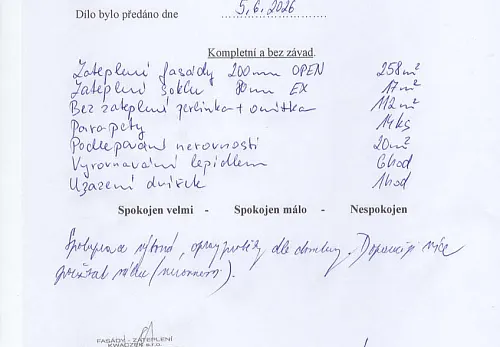 Dílo bylo předáno dne 5.6.2026
Kompletní a bez závad.
Zateplení fasády 200mm OPEN 258m²
Zateplení soklu 80mm EX 17m²
Bez zateplení perlinka + omítka 112m²
Parapety 14ks
Podlepování nerovností 20m²
Vyrovnávání lepidlem 6hod
Uzazení dvířek 1hod
Spokojen velmi - Spokojen málo - Nespokojen
Spolupráce výborná, dle domluvy. Doporučuji více
FASÁDY - ZATEPLENÍ
KWACZEK s.r.o.